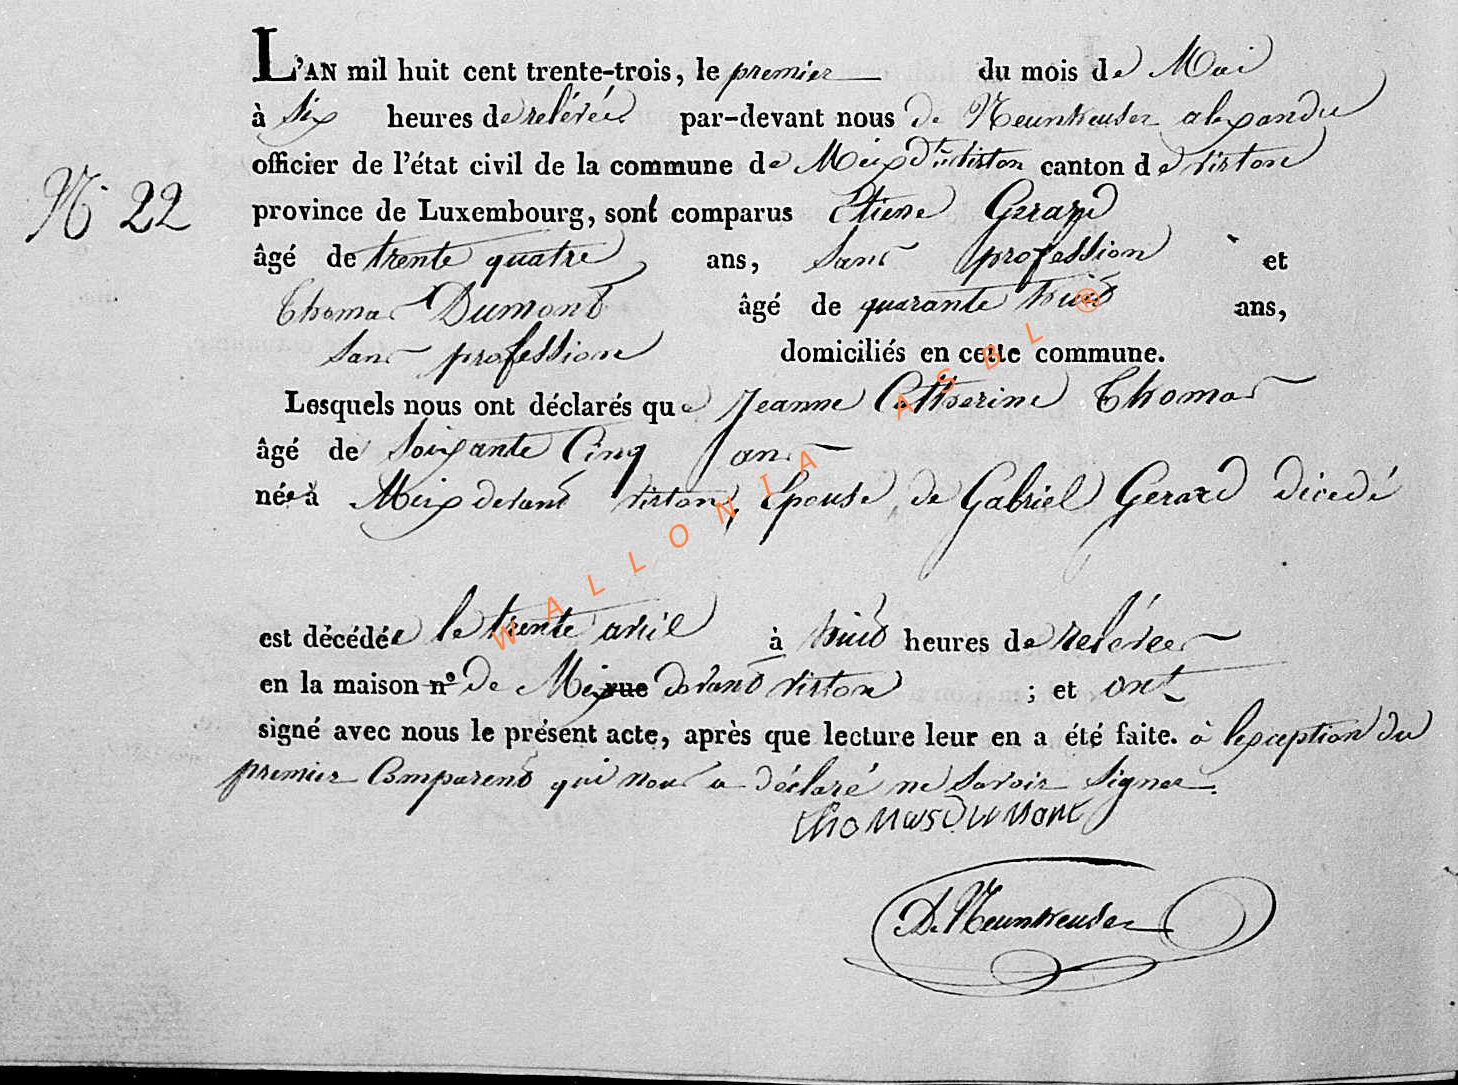 L'AN mil huit cent trente-trois, le premier du mois de Mai
à six heures de relévée par-devant nous de Neunheuser alexandre
officier de l'état civil de la commune de Meix dt virton canton de virton
N° 22
province de Luxembourg, sont comparus Etiene Gerard
âgé de trente quatre ans, sans profession et
Thomas Dumont âgé de quarante huit ans,
sans profession domiciliés en cette commune.
Lesquels nous ont déclarés que Jeanne Catherine Thomas
âgé de soixante Cinq ans
née à Meix devant virton, Epouse de Gabriel Gerard dicedé
est décédée le trente avril à huit heures de relévée
en la maison n° de Meix rue devant virton ; et ont
signé avec nous le présent acte, après que lecture leur en a été faite. à lexception du
premier Comparent qui nous a déclaré ne savoir signer.
thomas Dumont
D. Neunheuser
WALLONIA ASBL ®